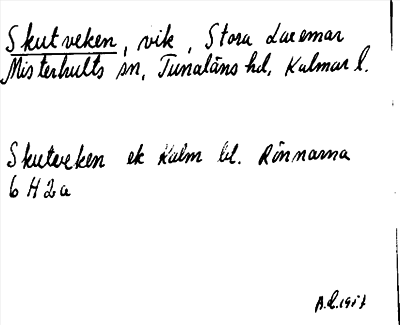 Skutveken, vik, Stora Laremar
Misterhults sn, Tunaläns hd, Kalmar l.
Skutveken ek Kalm bl. Rönnarna
6 H 2a